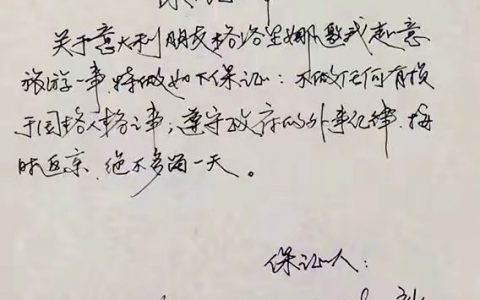 保证书
关于意大利朋友格洛里娜邀我赴意
旅游一事,特做如下保证:不做任何有损
于国格人格之事;遵守政府的外事纪律,按
时返京,绝不多留一天。
保证人: